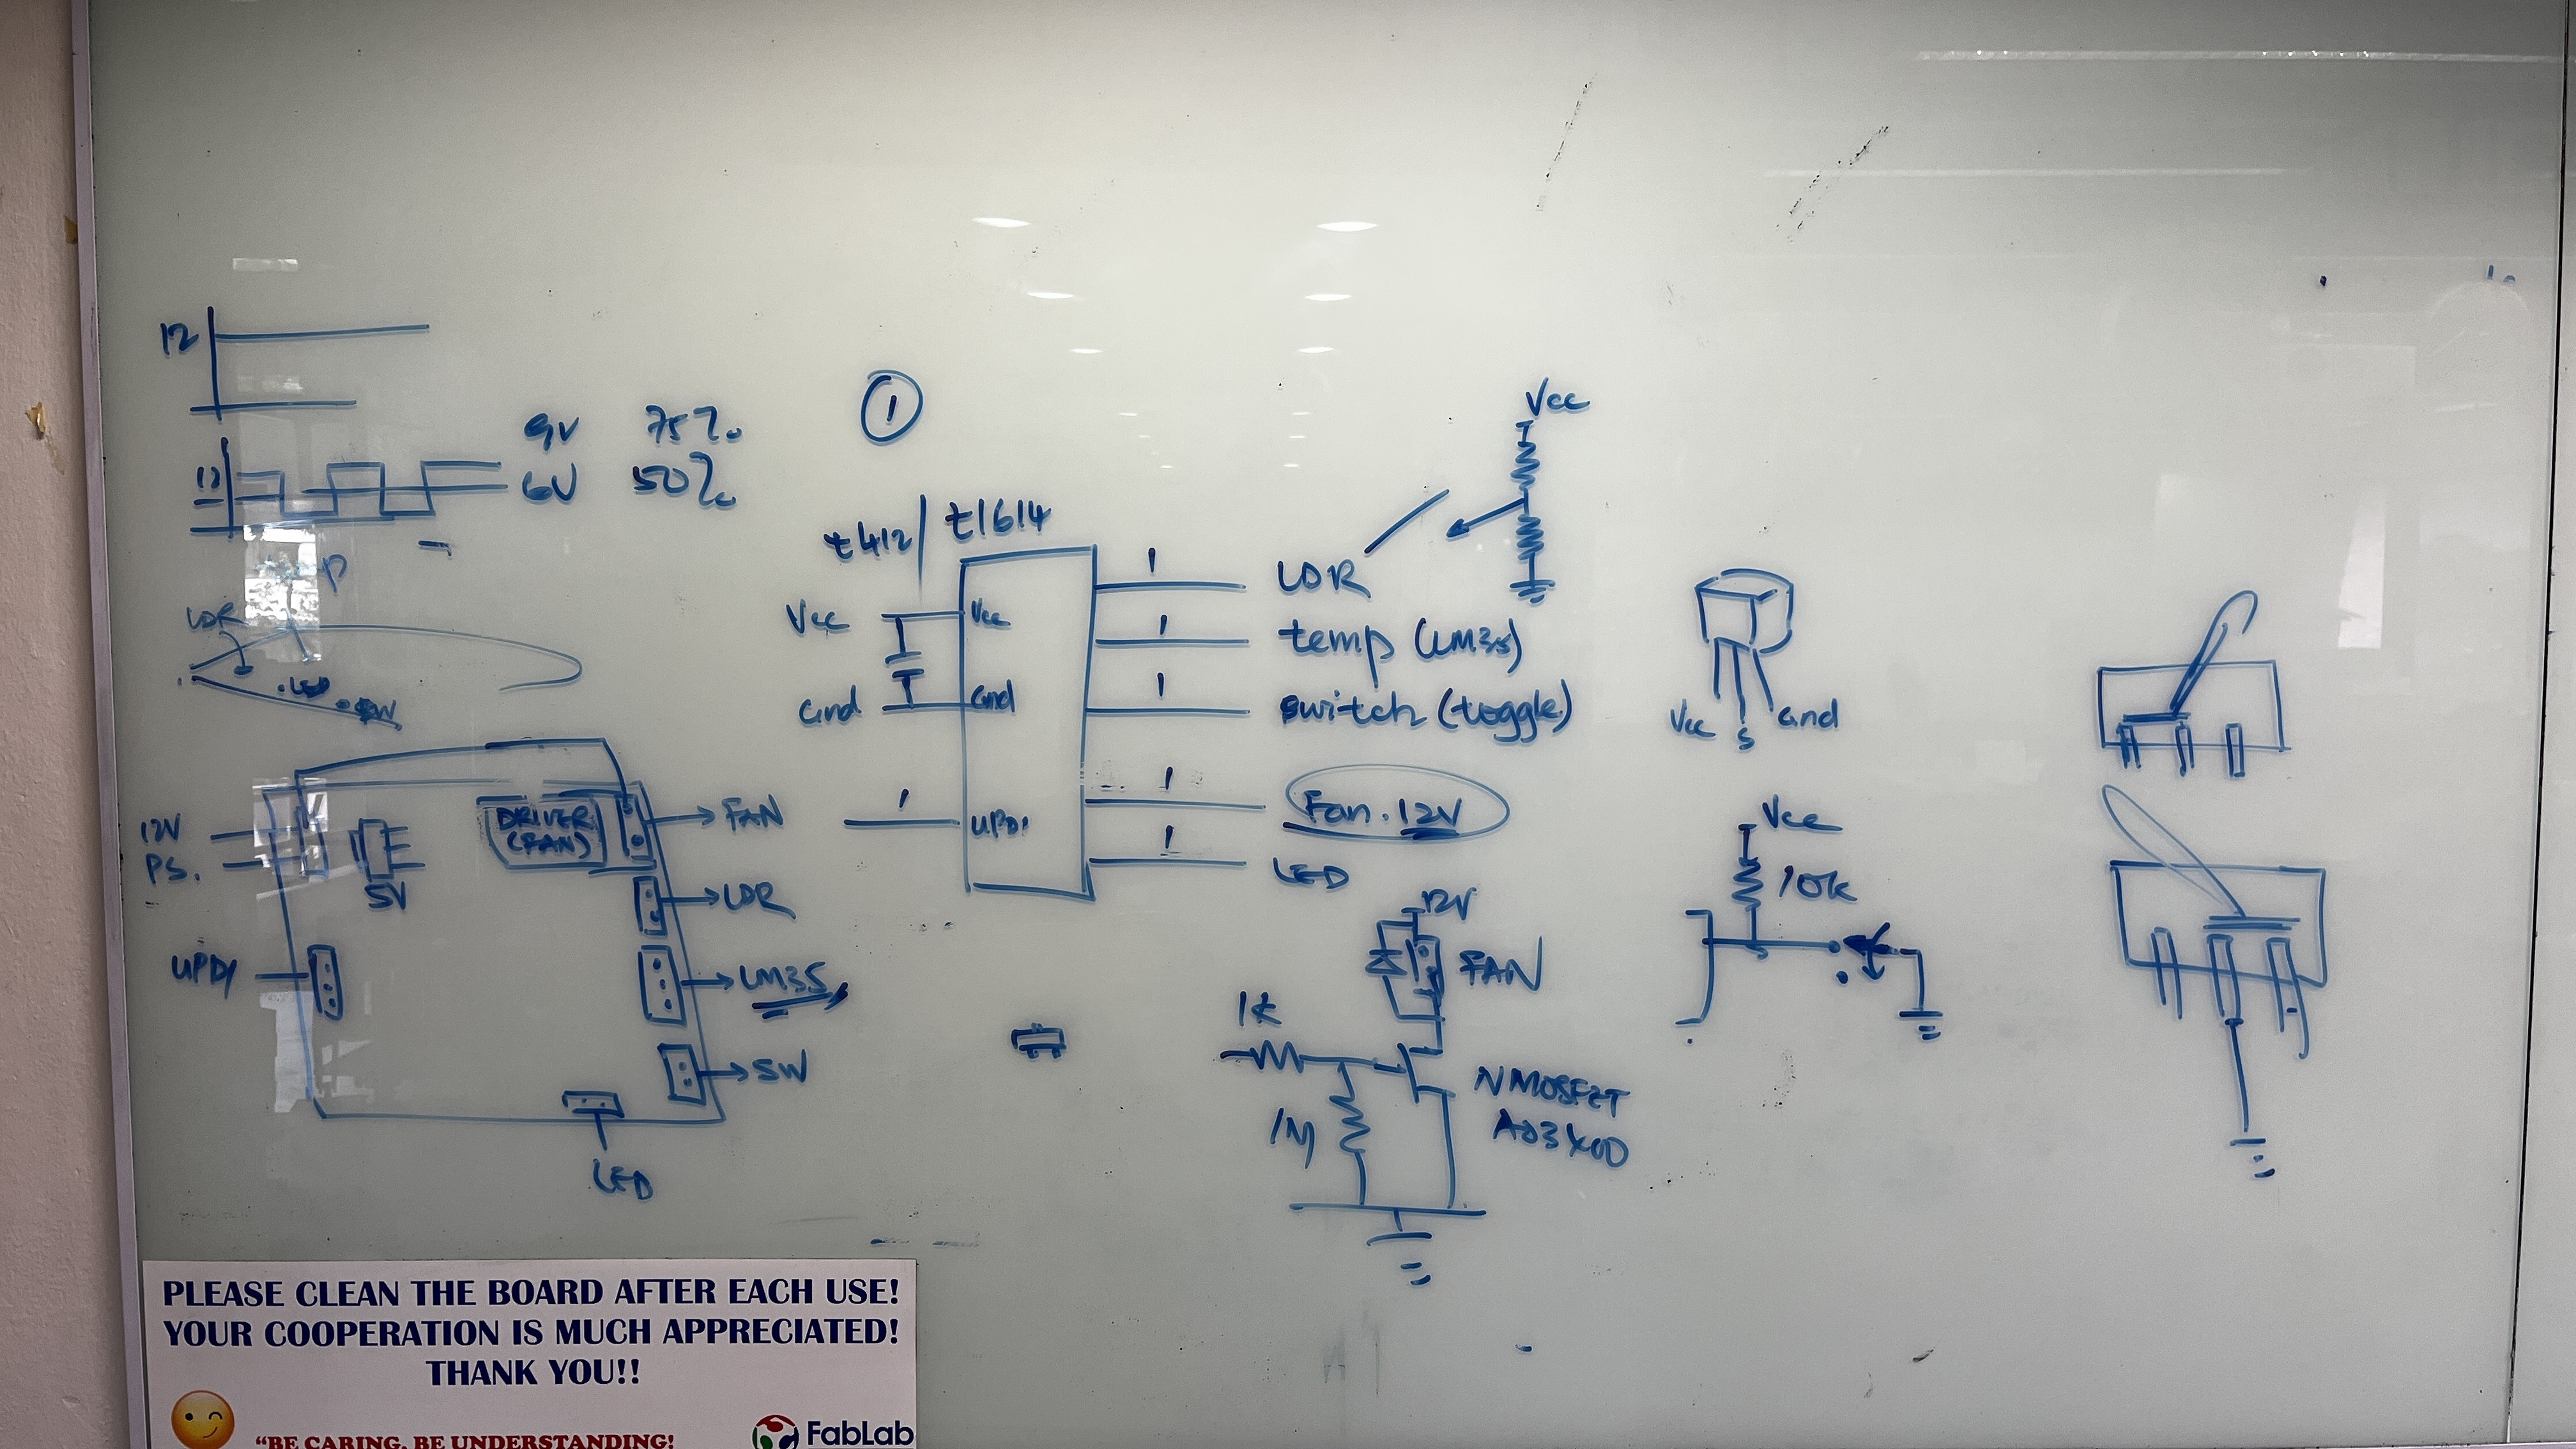 12
9V 75%
12
6V 50%
P
LDR
.LED
.SW
12V
P.S.
5V
DRIVER
(FAN)
FAN
LDR
UPDI
LM35
SW
LED
1
t412 t1614
Vcc
Vcc
Gnd
Gnd
UPDI
1
1 LDR
1 temp (LM35)
1 switch (toggle)
1 Fan. 12V
1 LED
Vcc
Vcc S Gnd
12V
FAN
1k
1M
NMOSFET
Vcc
10k
PLEASE CLEAN THE BOARD AFTER EACH USE!
YOUR COOPERATION IS MUCH APPRECIATED!
THANK YOU!!
"BE CARING, BE UNDERSTANDING!
FabLab